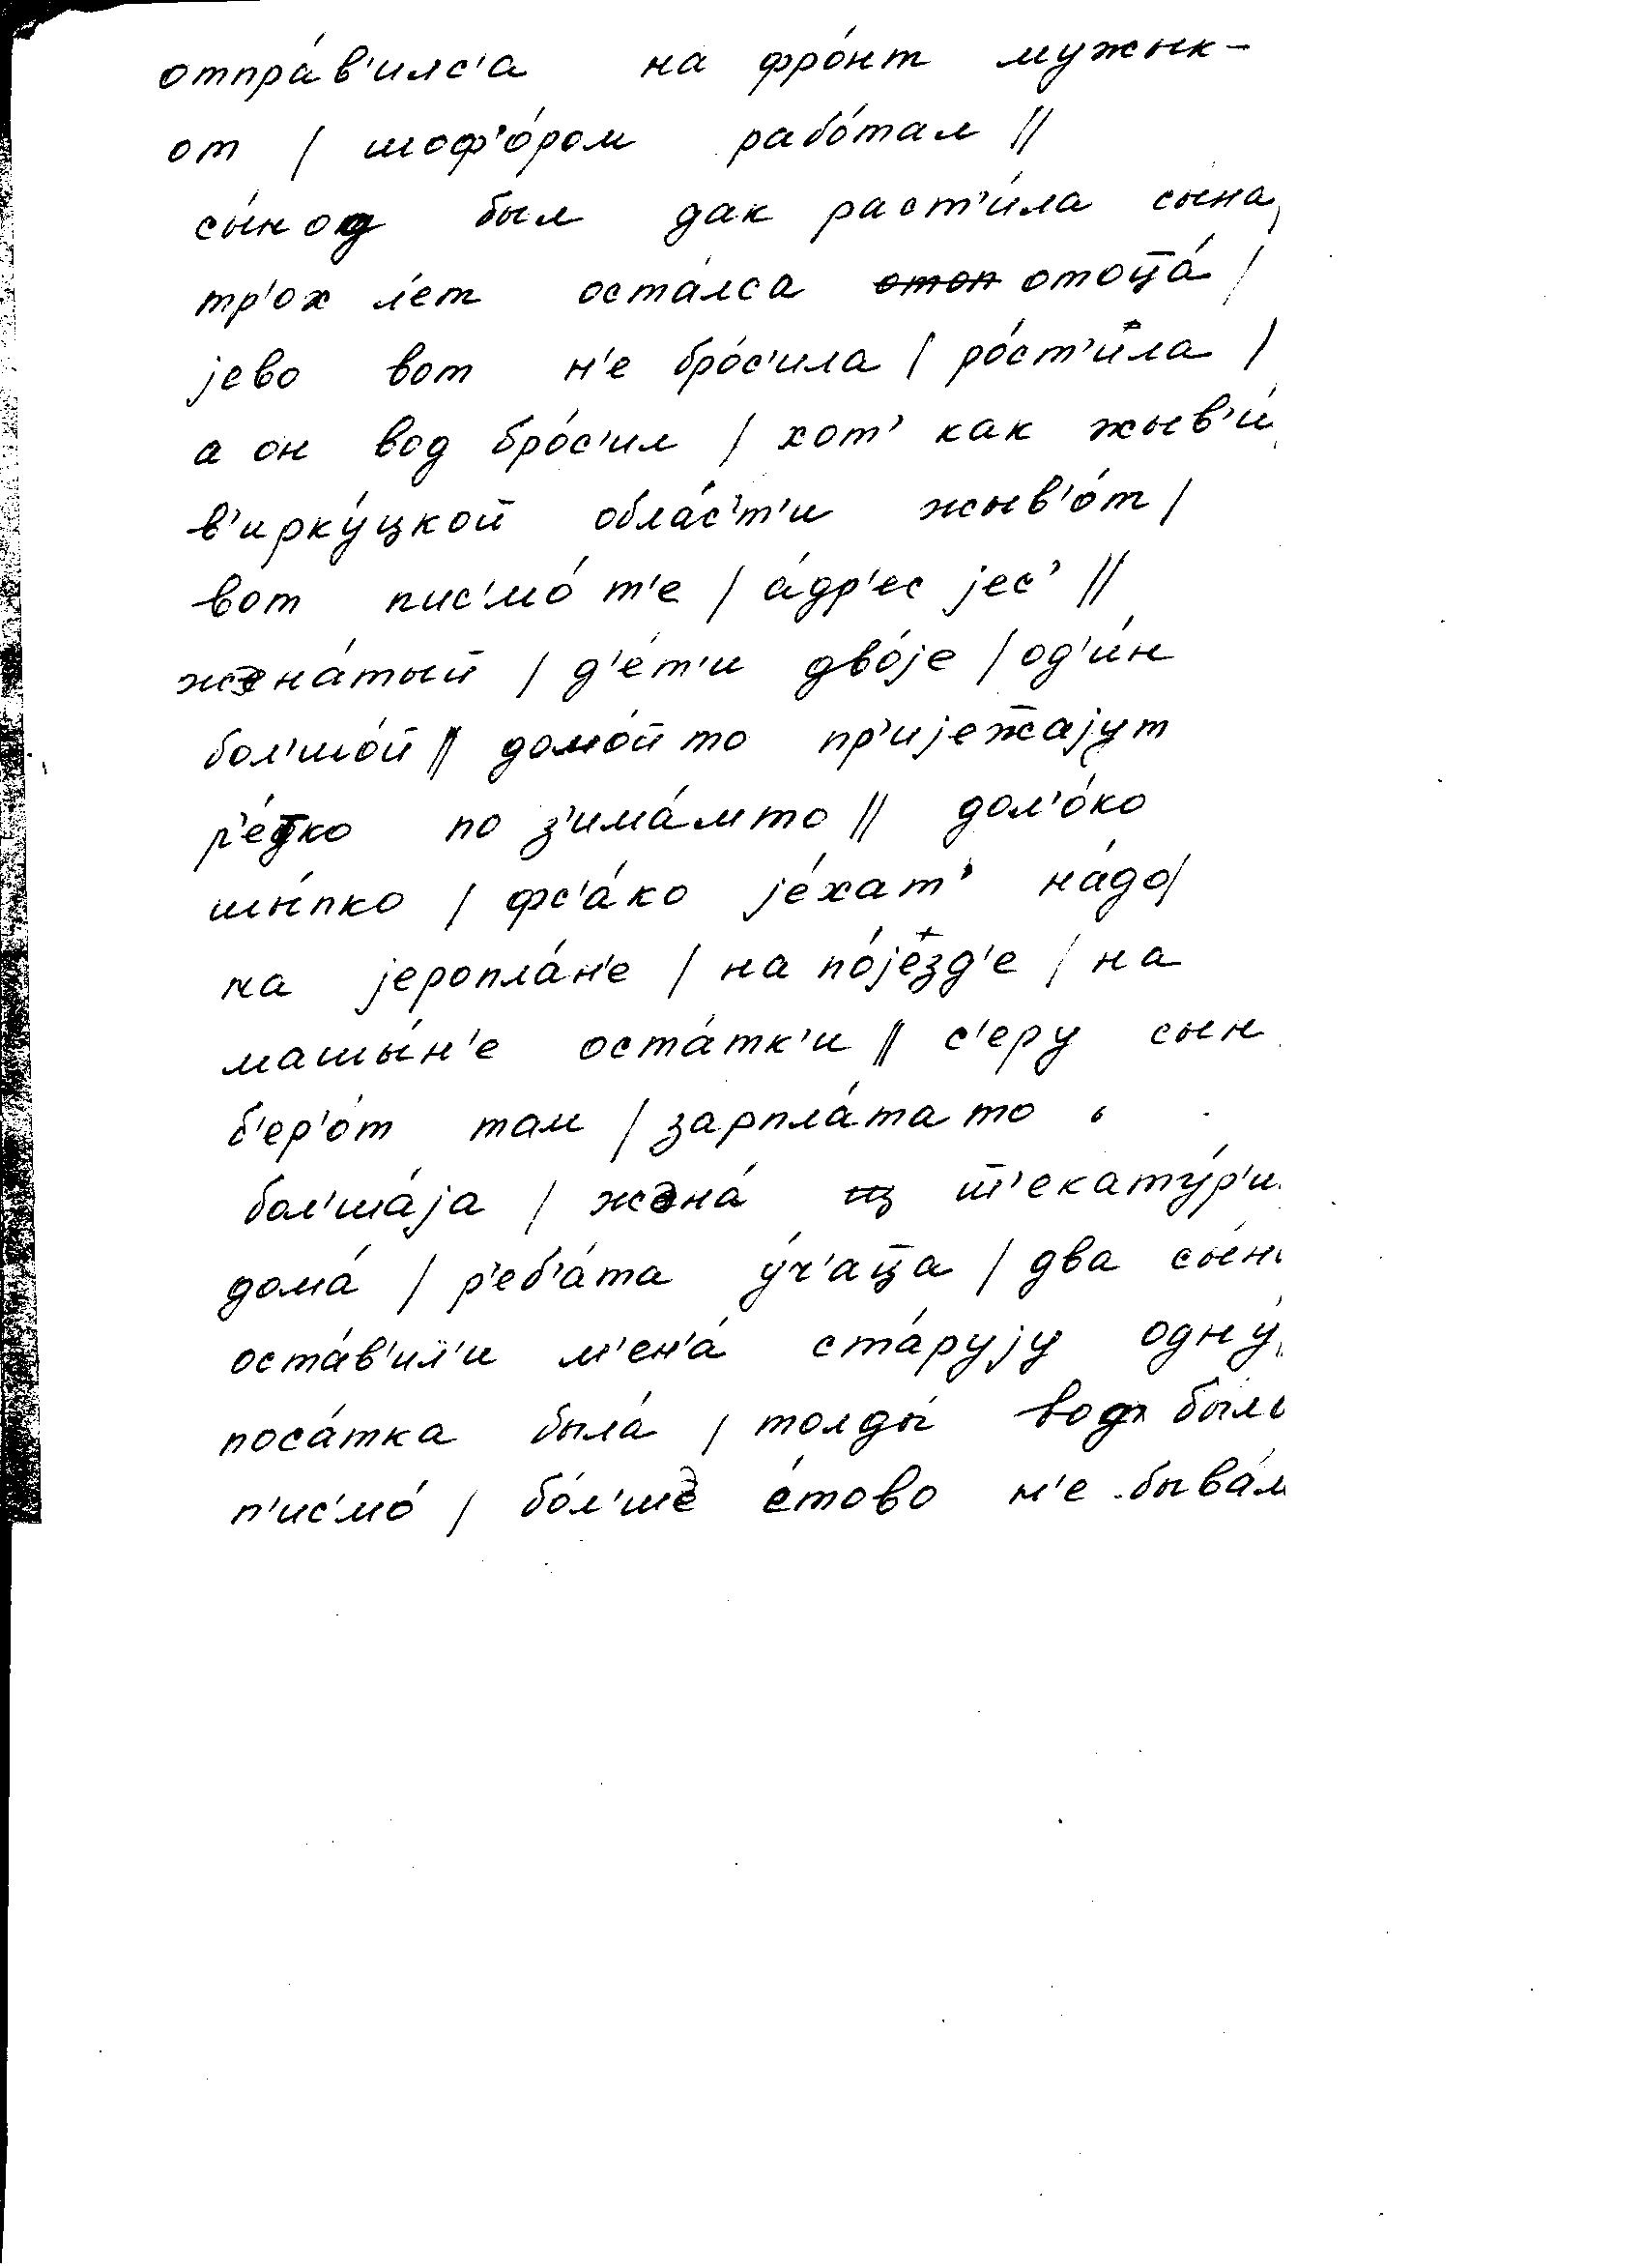 отпра́в'илс'а на фро́нт мужык-
от / шоф'о́ром рабо́тал //
сы́нод был дак раст'и́ла сы́на,
тр'ох л'ет оста́лса отоц̄а́ /
јево вот н'е бро́с'ила / ро́ст'ила /
а он вод бро́с'ил / хот' как жыв'и́
в'ирку́цкой обла́с'т'и жыв'о́т /
вот пис'мо́ т'е / а́др'ес јес' //
жэна́тый / д'е́т'и дво́је / од'и́н
бол'шо́й // домо́йто пр'ијеж̄ајут
р'е́тко по з'има́мто // дол'о́ко
шы́пко / фс'а́ко је́хат' на́до/
на јеропла́н'е / на по́језд'е / на
машы́н'е оста́тк'и // с'еру сын
б'ер'о́т там / зарпла́тато
бол'ша́ја / жэна́ шт'екату́р'и
дома́ / р'еб'а́та у́ч'ац̄а / два сы́н
оста́в'ил'и м'ен'а́ ста́рују одну́
поса́тка была́ / толды́ вод был
п'ис'мо́ / бо́л'шэ е́тово н'е быва́л